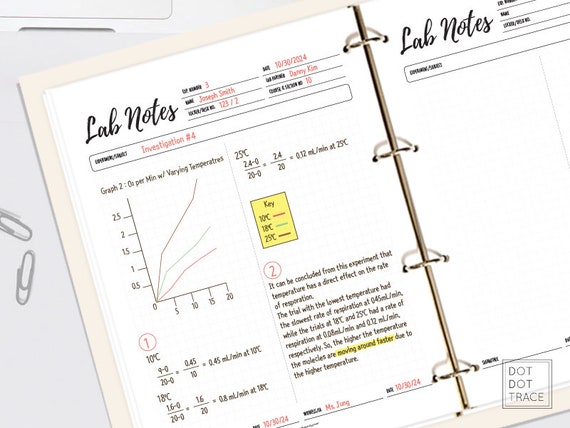 Lab Notes
EXP. NUMBER 3
DATE 10/30/2024
NAME Joseph Smith
LAB PARTNER Danny Kim
LOCKER/DESK NO. 123 / 2
COURSE & SECTION NO. 10
EXPERIMENT/SUBJECT Investigation #4
Graph 2 : O₂ per Min w/ Varying Temperatres
2.5
2
1.5
1
0.5
0 5 10 15 20
25℃
2.4-0/20-0 = 2.4/20 = 0.12 mL/min at 25℃
Key
10℃
18℃
25℃
1
10℃
9-0/20-0 = 0.45/10 = 0.45 mL/min at 10℃
18℃
1.6-0/20-0 = 1.6/20 = 0.8 mL/min at 18℃
2
It can be concluded from this experiment that
temperature has a direct effect on the rate
of resporation.
The trial with the lowest temperature had
the slowest rate of respiration at 0.45mL/min,
while the trials at 18℃ and 25℃ had a rate of
respiration at 0.08mL/min and 0.12 mL/min,
respectively. So, the higher the temperature
the molecles are moving around faster due to
the higher temperature.
10/30/24
WITNESS/TA Ms. Jung
DATE 10/30/24
Lab Notes
EXP. NUMBER
NAME
LOCKER/DESK NO.
EXPERIMENT/SUBJECT
SIGNATURE
DOT
DOT
TRACE